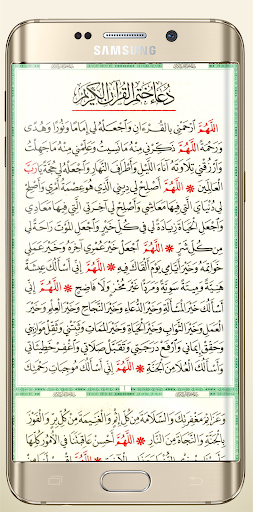 SAMSUNG
دُعَاءُ خَتْمِ الْقُرْآنِ الْكَرِيمِ
اللَّهُمَّ ارْحَمْنِي بِالْقُرْءَانِ وَاجْعَلْهُ لِي إِمَامًا وَنُورًا وَهُدًى
وَرَحْمَةً اللَّهُمَّ ذَكِّرْنِي مِنْهُ مَا نَسِيتُ وَعَلِّمْنِي مِنْهُ مَا جَهِلْتُ
وَارْزُقْنِي تِلَاوَتَهُ آنَاءَ اللَّيْلِ وَأَطْرَافَ النَّهَارِ وَاجْعَلْهُ لِي حُجَّةً يَا رَبَّ
الْعَالَمِينَ * اللَّهُمَّ أَصْلِحْ لِي دِينِي الَّذِي هُوَ عِصْمَةُ أَمْرِي وَأَصْلِحْ
لِي دُنْيَايَ الَّتِي فِيهَا مَعَاشِي وَأَصْلِحْ لِي آخِرَتِي الَّتِي فِيهَا مَعَادِي
وَاجْعَلِ الْحَيَاةَ زِيَادَةً لِي فِي كُلِّ خَيْرٍ وَاجْعَلِ الْمَوْتَ رَاحَةً لِي
مِنْ كُلِّ شَرٍّ * اللَّهُمَّ اجْعَلْ خَيْرَ عُمْرِي آخِرَهُ وَخَيْرَ عَمَلِي
خَوَاتِمَهُ وَخَيْرَ أَيَّامِي يَوْمَ أَلْقَاكَ فِيهِ * اللَّهُمَّ إِنِّي أَسْأَلُكَ عِيشَةً
هَنِيَّةً وَمِيتَةً سَوِيَّةً وَمَرَدًّا غَيْرَ مُخْزٍ وَلَا فَاضِحٍ * اللَّهُمَّ إِنِّي أَسْأَلُكَ
خَيْرَ الْمَسْأَلَةِ وَخَيْرَ الدُّعَاءِ وَخَيْرَ النَّجَاحِ وَخَيْرَ الْعِلْمِ وَخَيْرَ
الْعَمَلِ وَخَيْرَ الثَّوَابِ وَخَيْرَ الْحَيَاةِ وَخَيْرَ الْمَمَاتِ وَثَبِّتْنِي وَثَقِّلْ مَوَازِينِي
وَحَقِّقْ إِيمَانِي وَارْفَعْ دَرَجَتِي وَتَقَبَّلْ صَلَاتِي وَاغْفِرْ خَطِيئَاتِي
وَأَسْأَلُكَ الْعُلَا مِنَ الْجَنَّةِ * اللَّهُمَّ إِنِّي أَسْأَلُكَ مُوجِبَاتِ رَحْمَتِكَ
وَعَزَائِمَ مَغْفِرَتِكَ وَالسَّلَامَةَ مِنْ كُلِّ إِثْمٍ وَالْغَنِيمَةَ مِنْ كُلِّ بِرٍّ وَالْفَوْزَ
بِالْجَنَّةِ وَالنَّجَاةَ مِنَ النَّارِ * اللَّهُمَّ أَحْسِنْ عَاقِبَتَنَا فِي الْأُمُورِ كُلِّهَا